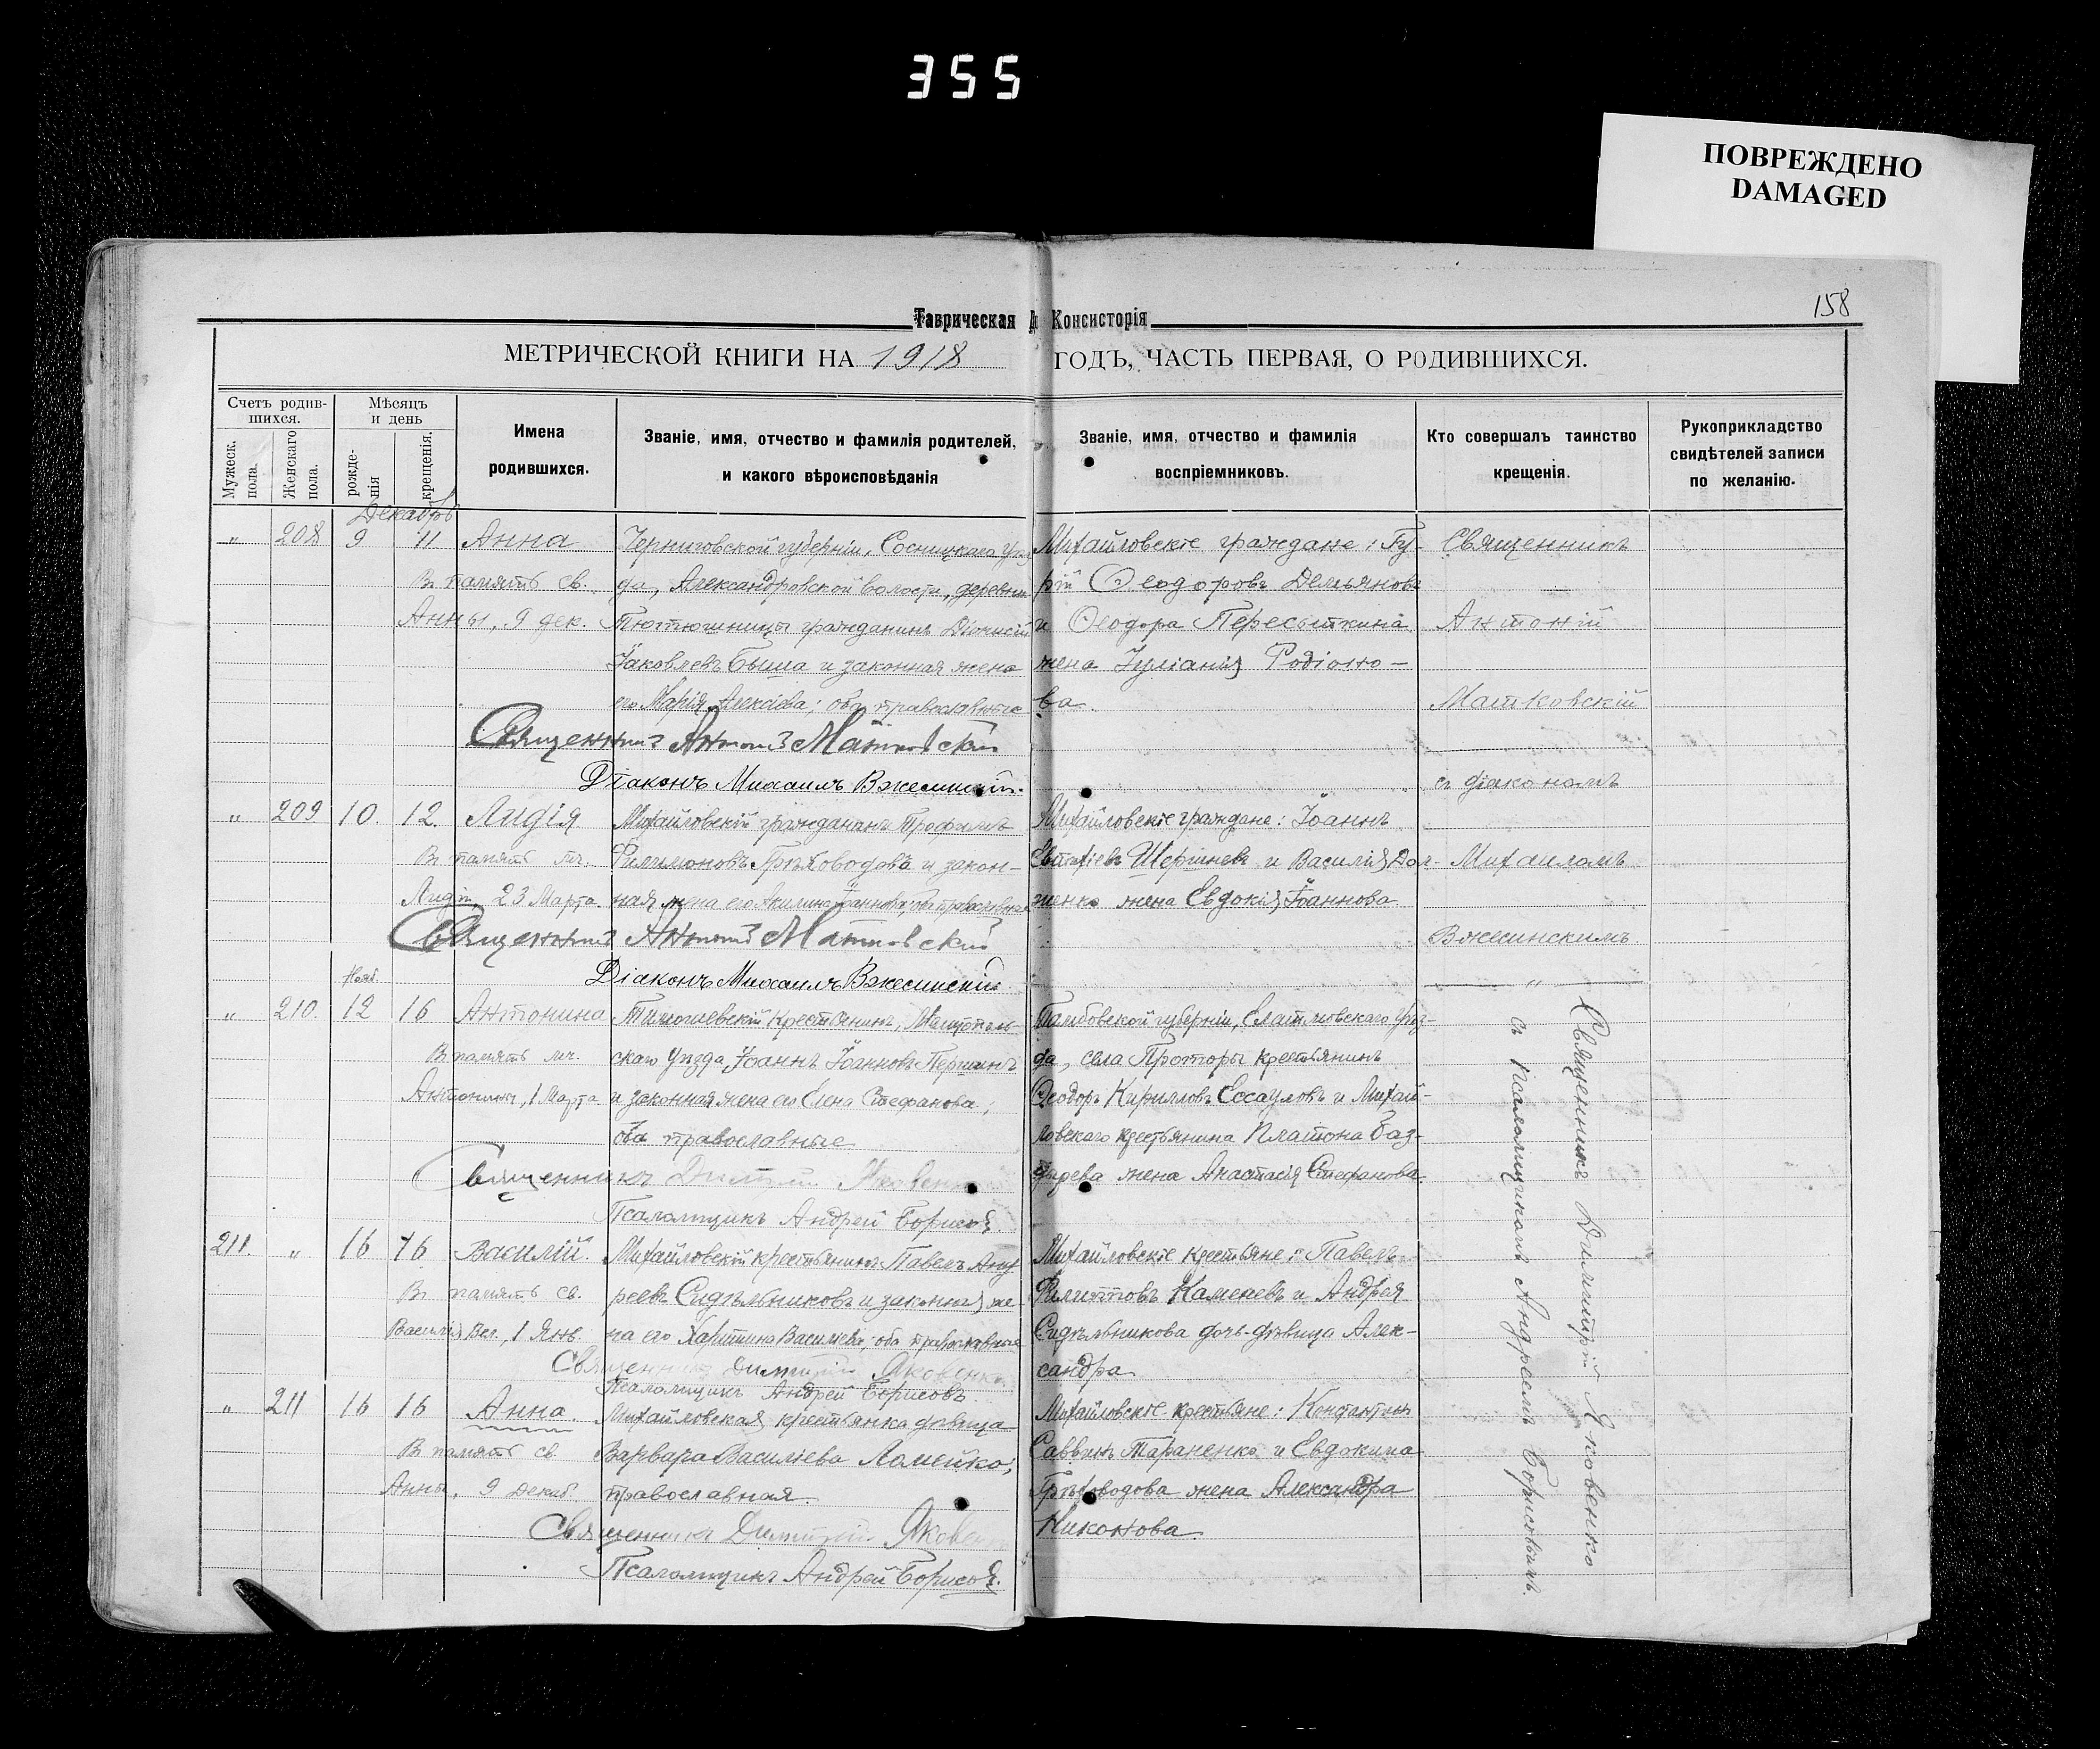 355
ПОВРЕЖДЕНО
DAMAGED
158
Таврическая Д Консисторія
МЕТРИЧЕСКОЙ КНИГИ НА 1918 ГОДЪ, ЧАСТЬ ПЕРВАЯ, О РОДИВШИХСЯ.
Счетъ родив-
шихся.
Мужеск. пола.
Женскаго пола.
Мѣсяцъ
и день
рожде-
нія
крещенія.
Имена
родившихся.
Званіе, имя, отчество и фамилія родителей,
и какого вѣроисповѣданія
Званіе, имя, отчество и фамилія
воспріемниковъ.
Кто совершалъ таинство
крещенія.
Рукоприкладство
свидѣтелей записи
по желанію.
Декабрь
„ 208 9 11 Анна
Въ память св.
Анны, 9 дек.
Черниговской губерніи, Сосницкаго уѣз
да, Александровской волости, деревни
гражданинъ Діонисій
Іаковлевъ Быша и законная жена
его Марія Алексіева; оба православные
Священникъ Антоній Матковскій
Діаконъ Михаилъ Вжесинскій.
Михайловскіе граждане: Гу-
рій Ѳеодоровъ Демьяновъ
и Ѳеодора Пересыпкина
жена Іуліанія Родіоно-
ва.
Священникъ
Антоній
Матковскій
съ діакономъ
Михаиломъ
Вжесинскимъ
„
„ 209 10. 12. Лидія
Въ память мч.
Лидіи, 23 Марта
Михайловскій гражданинъ Трофимъ
Филимоновъ Грѣховодовъ и закон-
ная жена его Акилина Іоаннова; оба православные
Священникъ Антоній Матковскій
Діаконъ Михаилъ Вжесинскій.
Михайловскіе граждане: Іоаннъ
Евтихіевъ Шершневъ и Василія Дол-
женко жена Евдокія Іоаннова
Нояб.
„ 210. 12 16 Антонина
Въ память мч.
Антонины, 1 Марта
Тимошевскій крестьянинъ, Мелитополь-
скаго уѣзда Іоаннъ Іоанновъ
и законная жена его Елена Стефанова;
оба православные
Священникъ Димитрій Яковенко
Псаломщикъ Андрей Борисовъ.
Тамбовской губерніи, Елатомовскаго уѣз-
да, села Проторы крестьянинъ
Ѳеодоръ Кирилловъ Ессауловъ и Михай-
ловскаго крестьянина Платона Баз-
дырева жена Анастасія Стефанова
Священникъ Димитрій Яковенко
съ псаломщикомъ Андреемъ Борисовымъ.
211. „ 16 16 Василій.
Въ память св.
Василія Вел., 1 Янв.
Михайловскій крестьянинъ Павелъ Анд
реевъ Сидѣльниковъ и законная же-
на его Харитина Василіева; оба православные
Священникъ Димитрій Яковенко
Псаломщикъ Андрей Борисовъ
Михайловскіе крестьяне: Павелъ
Филипповъ Каменевъ и Андрея
Сидѣльникова дочь-дѣвица Алек-
сандра
„ 211 16 16 Анна
Въ память св.
Анны, 9 Декаб.
Михайловская крестьянка дѣвица
Варвара Василіева Ломейко,
православная.
Священникъ Димитрій Яковен
Псаломщикъ Андрей Борисовъ.
Михайловскіе крестьяне: Константинъ
Саввинъ Тараненко и Евдокима
Грѣховодова жена Александра
Никонова